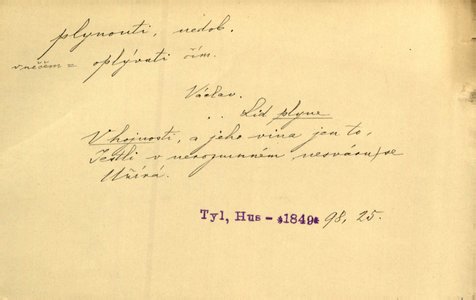 plynouti, nedok.
v něčem = oplývati čím.
Václav.
.. Lid plyne
V hojnosti, a jeho vina jen to,
Jestli v nerozumném nesváru se
Užírá.
Tyl, Hus - *1849* 98, 25.